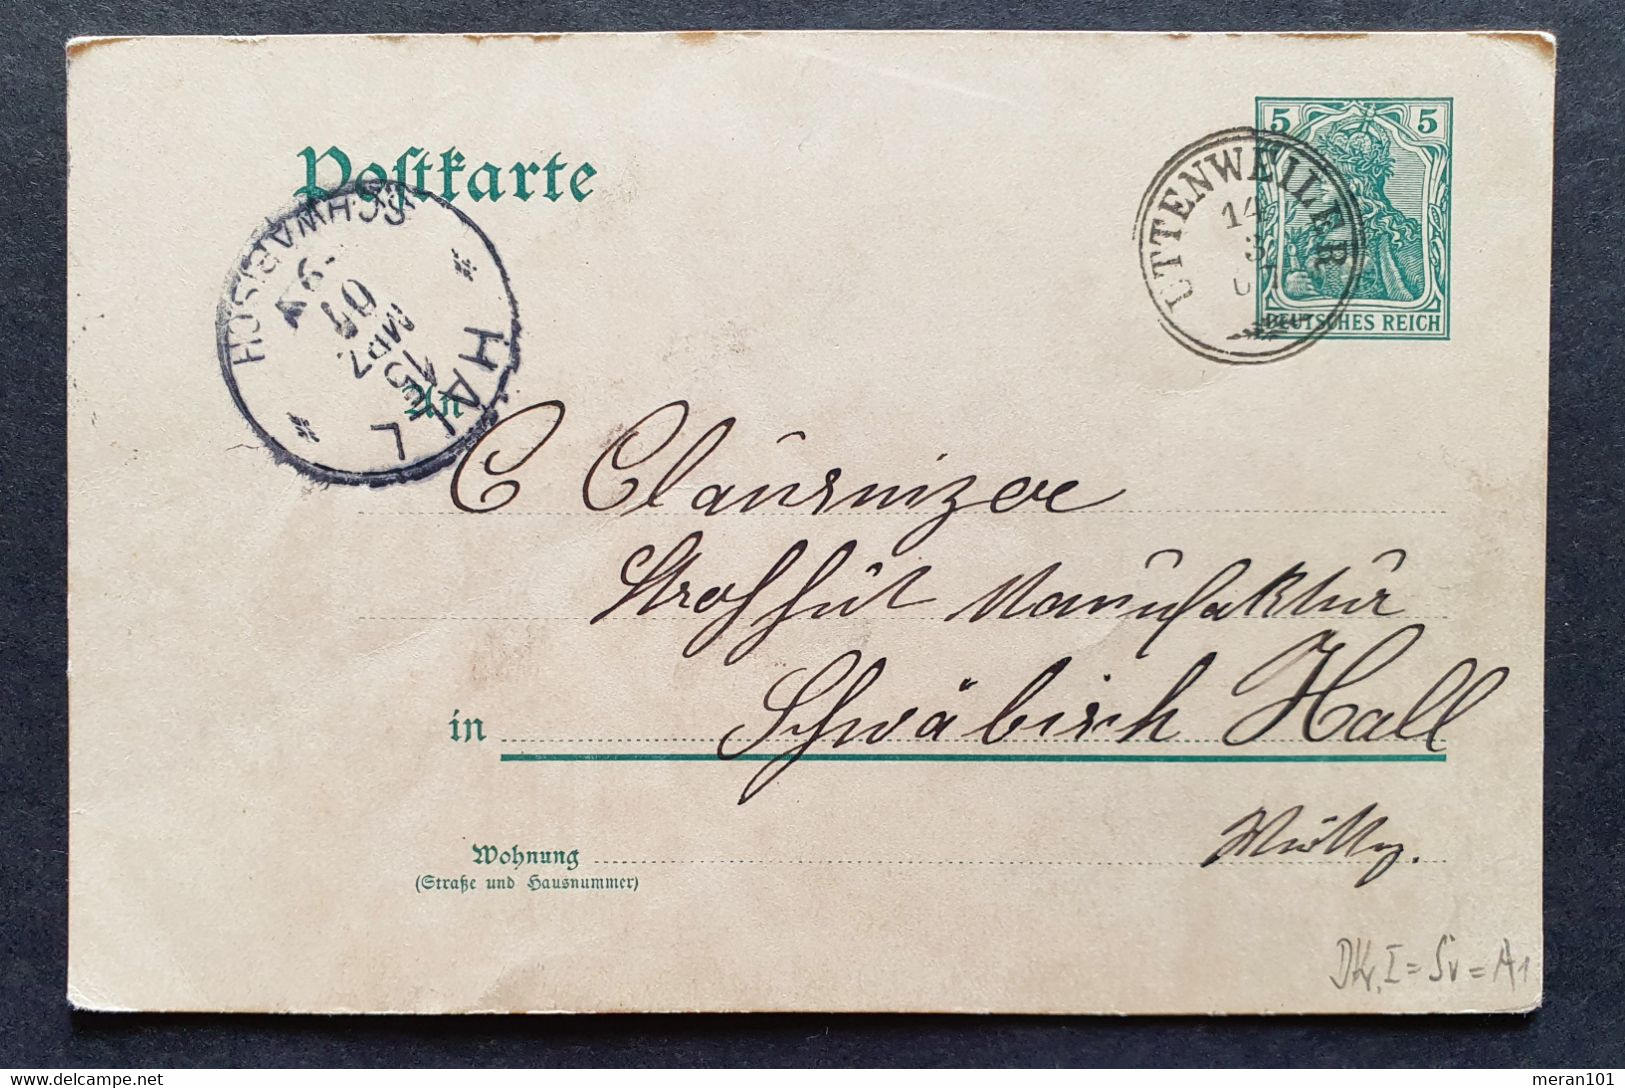 Postkarte
5 5
DEUTSCHES REICH
UTTENWEILER
14
3
07
SCHWÄBISCH
HALL
15
MRZ
07
An
C Clausnizer
Strohhut Manufaktur
in Schwäbisch Hall
Württg.
Wohnung
(Straße und Hausnummer)
DKr. I = Sv = A1
meran101